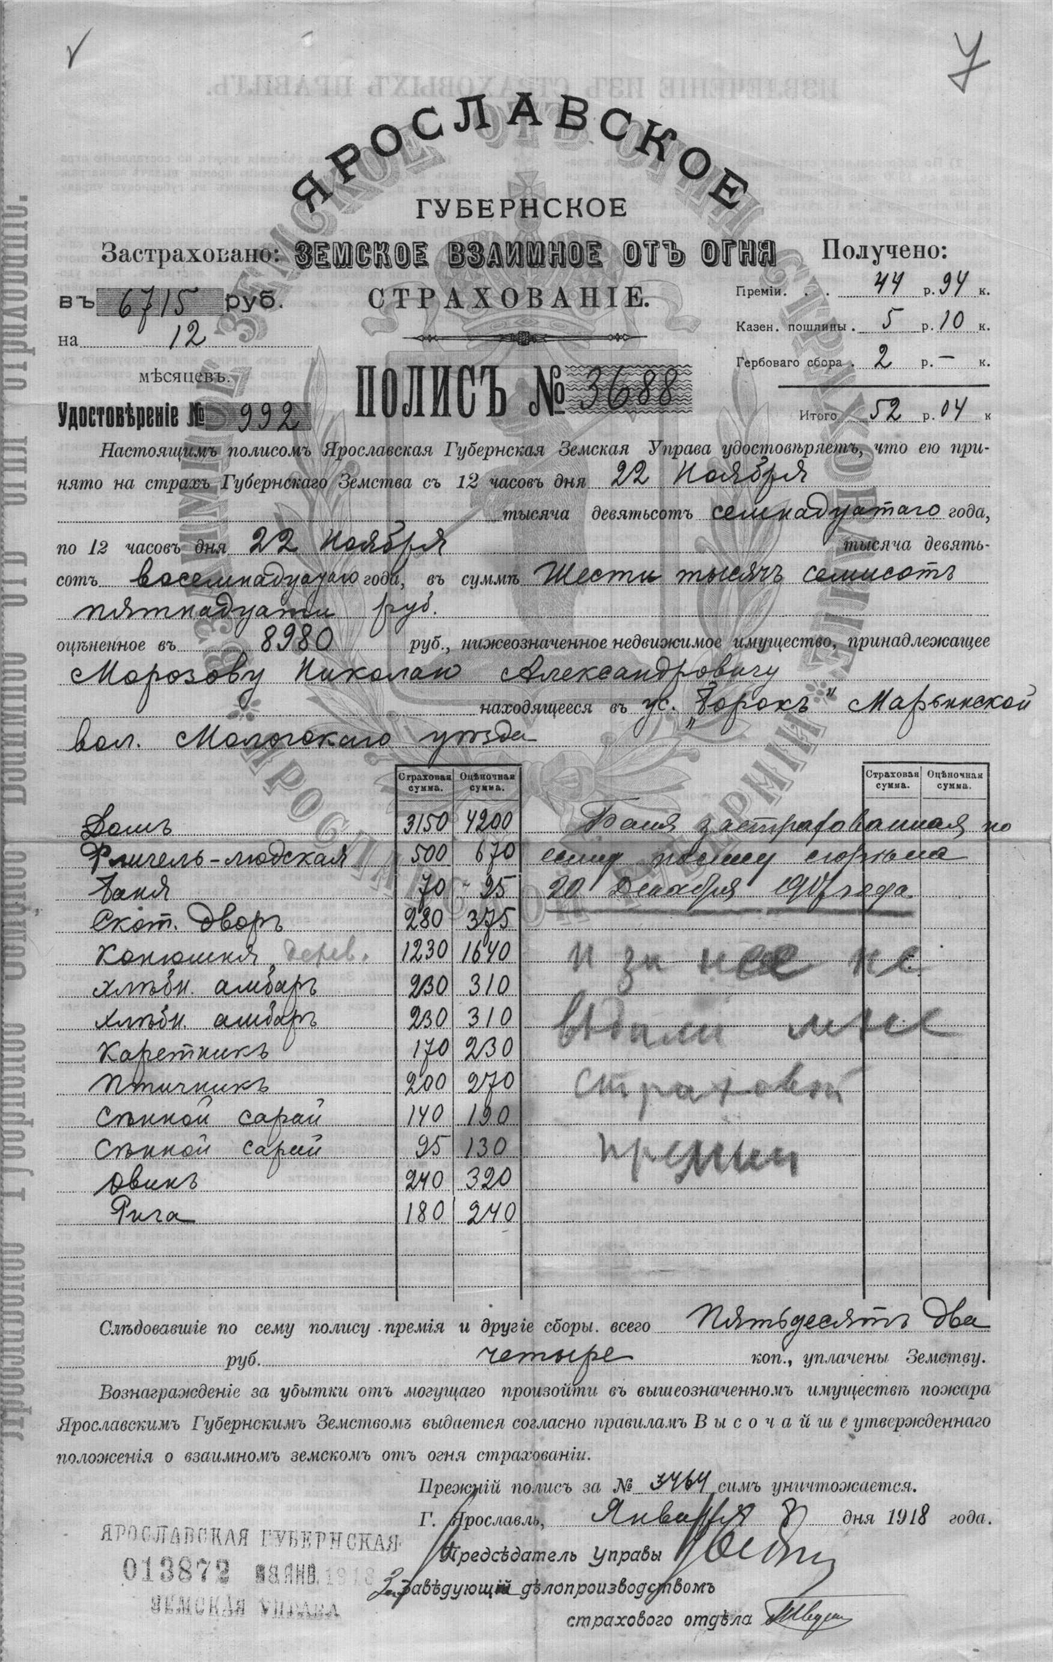 ЯРОСЛАВСКОЕ
ГУБЕРНСКОЕ
ЗЕМСКОЕ ВЗАИМНОЕ ОТЪ ОГНЯ
СТРАХОВАНІЕ.
Застраховано:
въ 6715 руб.
на 12
мѣсяцевъ.
Удостовѣреніе № 992
Получено:
Преміи. . . 44 р. 94 к.
Казен. пошлины. 5 р. 10 к.
Гербоваго сбора. 2 р. — к.
Итого 52 р. 04 к
ПОЛИСЪ № 3688
Настоящимъ полисомъ Ярославская Губернская Земская Управа удостовѣряетъ, что ею при-
нято на страхъ Губернскаго Земства съ 12 часовъ дня 22 Ноября
тысяча девятьсотъ семнадцатаго года,
по 12 часовъ дня 22 Ноября тысяча девять-
сотъ восемнадцатаго года, въ суммѣ Шести тысячъ семисотъ
пятнадцати руб.
оцѣненное въ 8980 руб., нижеозначенное недвижимое имущество, принадлежащее
Морозову Николаю Александровичу
находящееся въ ус. „Борокъ" Марьинской
вол. Мологскаго уѣзда
Страховая сумма. Оцѣночная сумма.
Страховая сумма. Оцѣночная сумма.
Домъ 3150 4200
Флигель-людская 500 670
Баня 70 - 95
Скот. дворъ 280 375
Конюшня дерев. 1230 1640
Хлѣбн. амбаръ 230 310
Хлѣбн. амбаръ 230 310
Каретникъ 170 230
Птичникъ 200 270
Сѣнной сарай 140 190
Сѣнной сарай 95 130
Овинъ 240 320
Рига 180 240
Баня застрахованная по
сему полису сгорѣла
20 Декабря 1917 года.
и за нее не
выдали мне
страховой
премии
Слѣдовавшіе по сему полису премія и другіе сборы всего Пятьдесятъ два
руб. четыре коп., уплачены Земству.
Вознагражденіе за убытки отъ могущаго произойти въ вышеозначенномъ имуществѣ пожара
Ярославскимъ Губернскимъ Земствомъ выдается согласно правиламъ Высочайше утвержденнаго
положенія о взаимномъ земскомъ отъ огня страхованіи.
Прежній полисъ за № 3464 симъ уничтожается.
Г. Ярославль, Января 8 дня 1918 года.
Предсѣдатель Управы
За Завѣдующій дѣлопроизводствомъ
страхового отдѣла
ЯРОСЛАВСКАЯ ГУБЕРНСКАЯ
013872 ЯНВ. 1918
ЗЕМСКАЯ УПРАВА